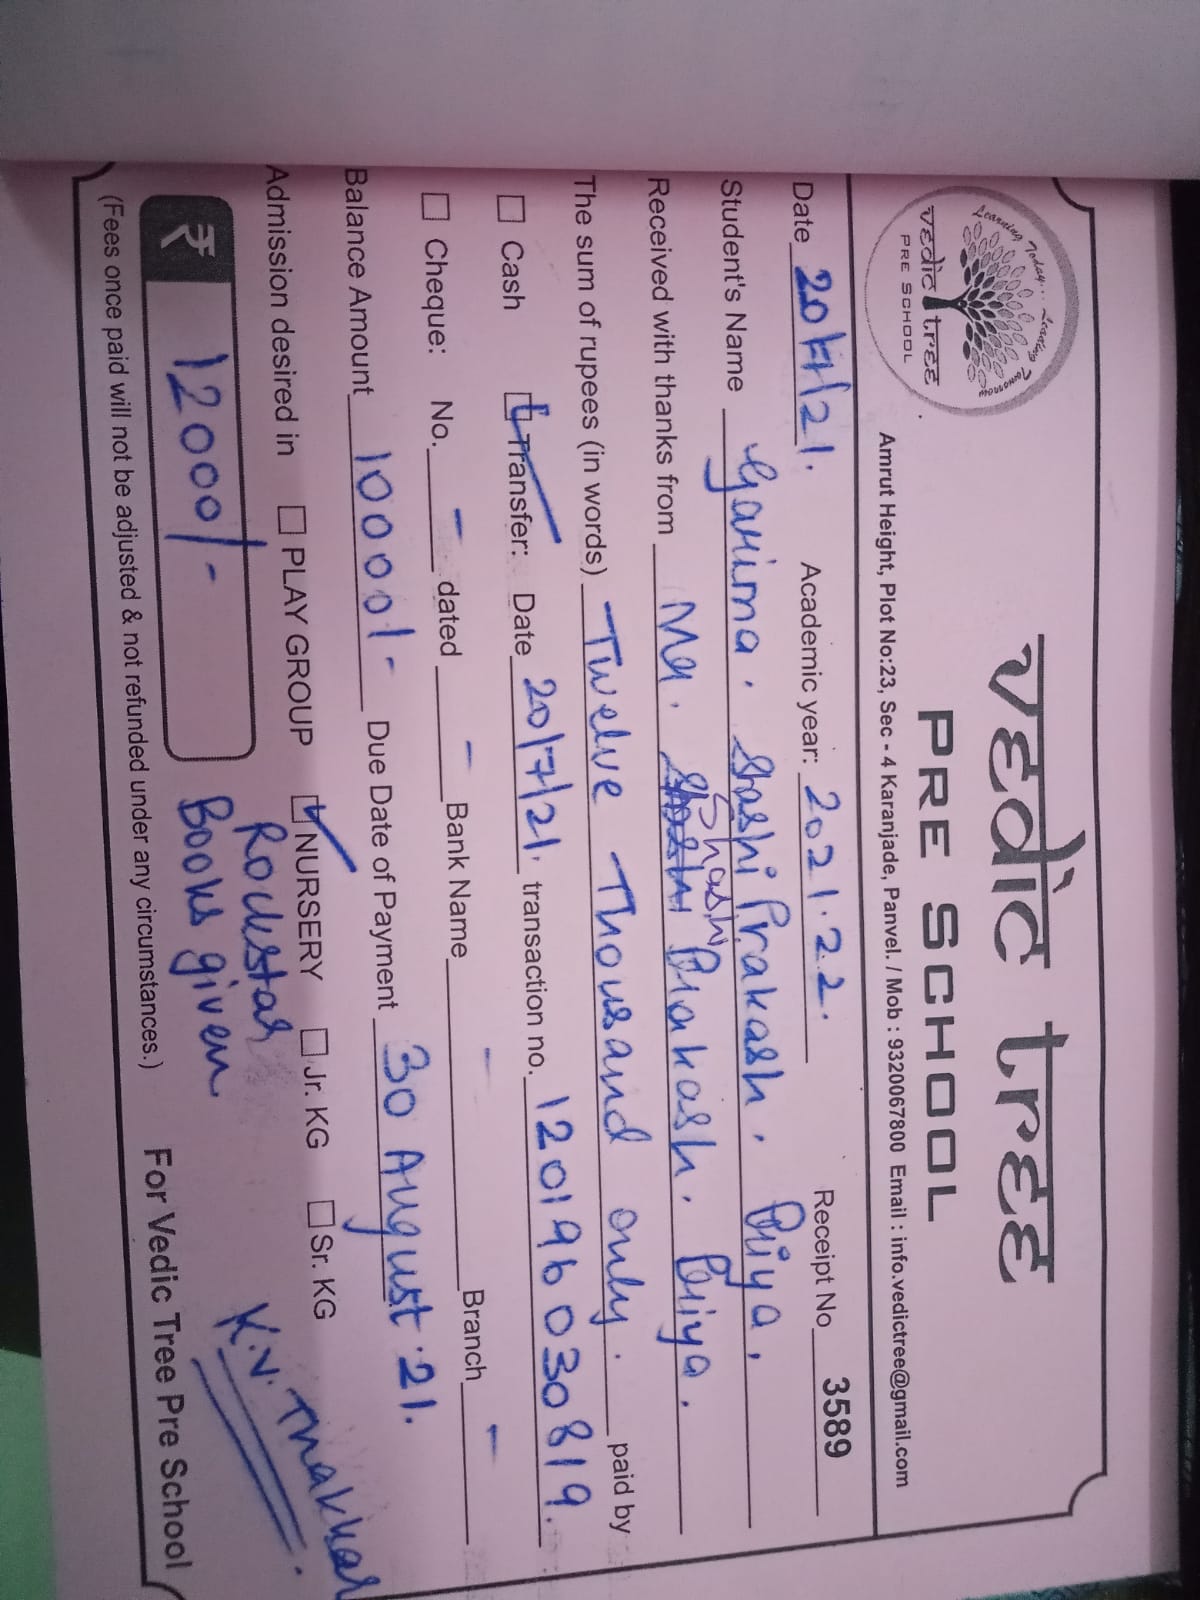 Learning Today... Leading Tomorrow
vedic tree
PRE SCHOOL
vedic tree
PRE SCHOOL
Amrut Height, Plot No:23, Sec - 4 Karanjade, Panvel. / Mob : 9320067800 Email : info.vedictree@gmail.com
Date 20/7/21. Academic year: 2021.22. Receipt No 3589
Student's Name Garima. Shashi Prakash. Priya.
Received with thanks from Mr. Shashi Prakash. Priya.
The sum of rupees (in words) Twelve Thousand only. paid by
☐ Cash ☑ Transfer: Date 20/7/21. transaction no. 120196030819.
☐ Cheque: No. - dated - Bank Name - Branch -
Balance Amount 10001- Due Date of Payment 30 August.21.
Admission desired in ☐ PLAY GROUP ☑ NURSERY ☐ Jr. KG ☐ Sr. KG
Rockstar
₹ 12000/- Books given K.V. Thakkar
(Fees once paid will not be adjusted & not refunded under any circumstances.) For Vedic Tree Pre School